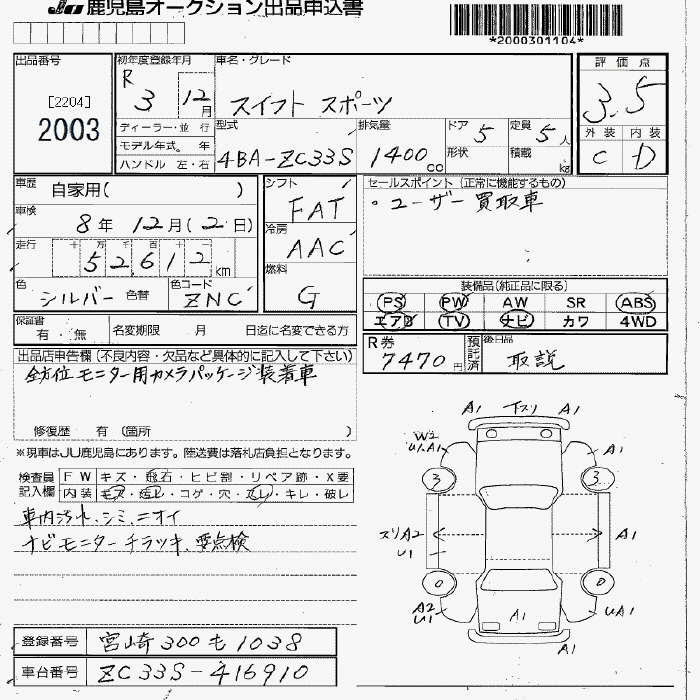 JU 鹿児島オークション出品申込書
*2000301104*
出品番号
[2204]
2003
初年度登録年月
R 3 12月
車名・グレード
スイフト スポーツ
評価点
3.5
外装 内装
C D
ディーラー・並 行
モデル年式. 年
ハンドル 左・右
型式
4BA-ZC33S
排気量
1400cc
ドア 5
形状
定員 5人
積載 kg
車歴 自家用( )
車検 8年 12月(2日)
走行 十 万 千 百 十
52,612km
色 シルバー 色替
色コード ZNC
シフト FAT
冷房 AAC
燃料 G
セールスポイント(正常に機能するもの)
・ユーザー買取車
装備品(純正品に限る)
PS PW AW SR ABS
エアB TV ナビ カワ 4WD
保証書 有・無
名変期限 月 日迄に名変できる方
R券 7470円
預託済
後日品 取説
出品店申告欄(不良内容・欠品など具体的に記入して下さい)
全方位モニター用カメラパッケージ装着車
修復歴 有 (箇所 )
※現車はJU鹿児島にあります。陸送費は落札店負担となります。
検査員記入欄
FW キズ・飛石・ヒビ割・リペア跡・X要
内装 キズ・汚レ・コゲ・穴・スレ・キレ・破レ
車内汚れ、シミ、ニオイ
ナビモニターチラツキ、要点検
A1 下スリ A1
W2
U1.A1
A1
3 3
スリA2
U1
A1
0 0
A2
U1
A1
UA1
A1
登録番号 宮崎 300 も 1038
車台番号 ZC33S-416910